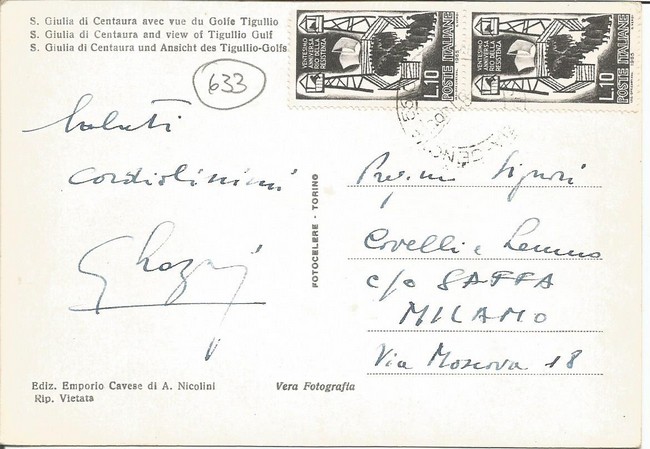 S. Giulia di Centaura avec vue du Golfe Tigullio
S. Giulia di Centaura and view of Tigullio Gulf
S. Giulia di Centaura und Ansicht des Tigullio-Golfs
633
VENTESIMO
ANNIVERSA
RIO DELLA
RESISTENZA
L.10
POSTE ITALIANE
VENTESIMO
ANNIVERSA
RIO DELLA
RESISTENZA
L.10
POSTE ITALIANE
1965
Saluti
cordialissimi
FOTOCELERE - TORINO
Signori
Covelli e
c/o SAFFA
MILANO
Via Moscova 18
Ediz. Emporio Cavese di A. Nicolini
Rip. Vietata
Vera Fotografia